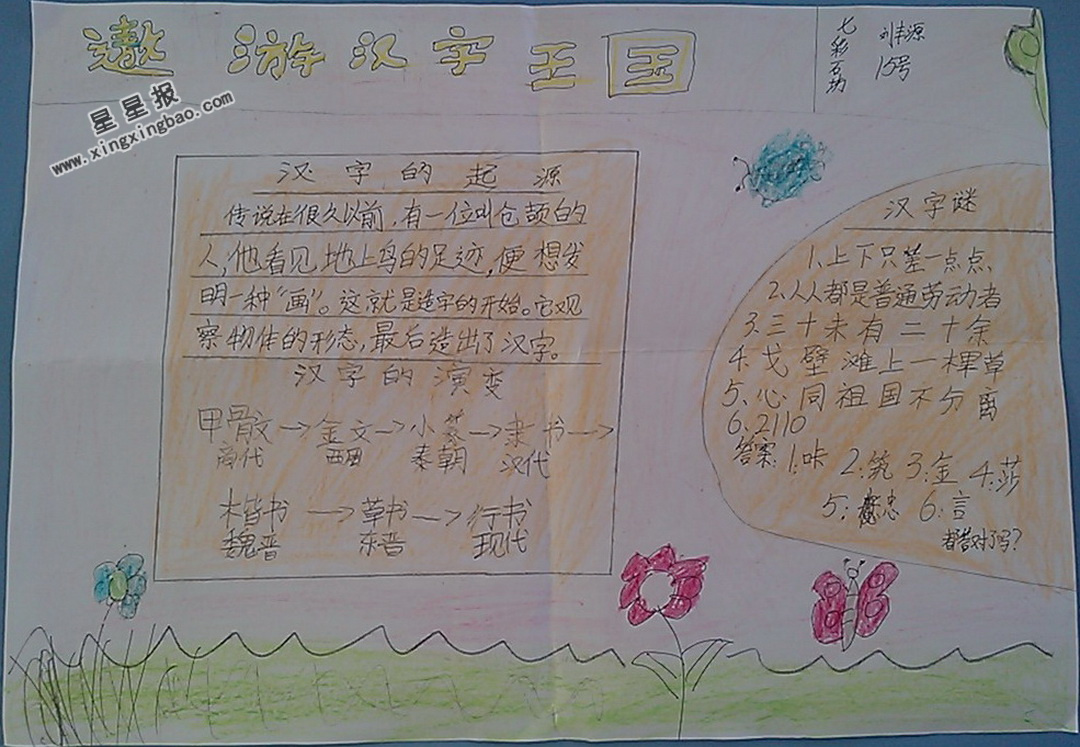 遨游汉字王国
七彩石坊
刘丰源
15号
星星报
www.xingxingbao.com
汉字的起源
传说在很久以前,有一位叫仓颉的
人,他看见地上鸟的足迹,便想发
明一种“画”。这就是造字的开始。它观
察物体的形态,最后造出了汉字。
汉字的演变
甲骨文→金文→小篆→隶书→
商代 西周 秦朝 汉代
楷书→草书→行书
魏晋 东晋 现代
汉字谜
1、上下只差一点点、
2、人人都是普通劳动者
3、三十未有二十余
4、戈壁滩上一棵草
5、心同祖国不分离
6、2110
答案:1:咔 2:筑 3:金 4:莎
5:忠 6:言
都答对了吗?